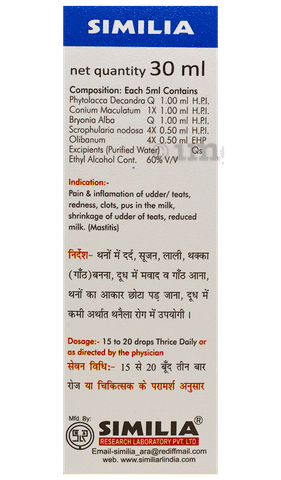 SIMILIA
net quantity 30 ml
Composition: Each 5ml Contains
Phytolacca Decandra Q 1.00 ml H.P.I.
Conium Maculatum 1X 1.00 ml H.P.I.
Bryonia Alba Q 1.00 ml H.P.I.
Scrophularia nodosa 4X 0.50 ml H.P.I.
Olibanum 4X 0.50 ml EHP
Excipients (Purified Water) Qs
Ethyl Alcohol Cont. 60% V/V
Indication:-
Pain & inflamation of udder/ teats,
redness, clots, pus in the milk,
shrinkage of udder of teats, reduced
milk. (Mastitis)
निर्देश- थनों में दर्द, सूजन, लाली, थक्का
(गाँठ)बनना, दूध में मवाद व गाँठ आना,
थनों का आकार छोटा पड़ जाना, दूध में
कमी अर्थात थनैला रोग में उपयोगी ।
Dosage:- 15 to 20 drops Thrice Daily or
as directed by the physician
सेवन विधि:- 15 से 20 बूँद तीन बार
रोज या चिकित्सक के परामर्श अनुसार
Mfd. By:
SIMILIA®
RESEARCH LABORATORY PVT. LTD.
Email-similia_ara@rediffmail.com
web. www.similiarlindia.com